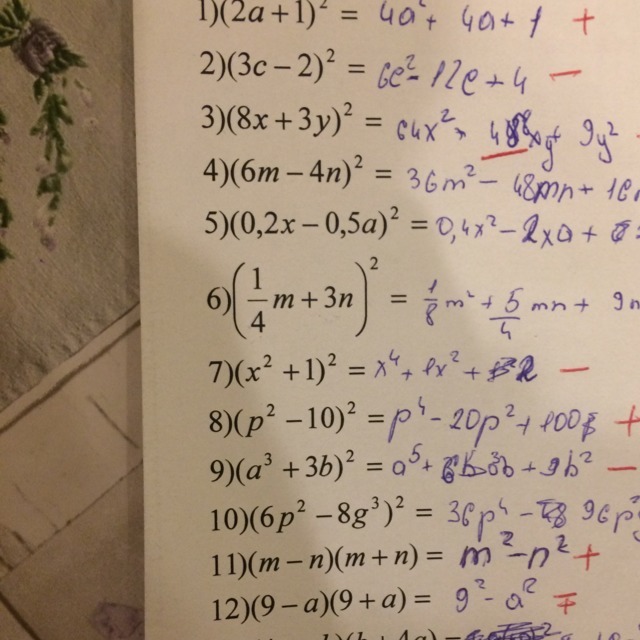 1)(2a+1)² = 4a² + 4a + 1 +
2)(3c−2)² = 6c² − 12c + 4 −
3)(8x+3y)² = 64x² + 48xy + 9y²
4)(6m−4n)² = 36m² − 48mn + 16n
5)(0,2x−0,5a)² = 0,4x² − 2xa +
6)(1/4 m+3n)² = 1/8 m² + 5/4 mn + 9n
7)(x²+1)² = x⁴ + 2x² + 2 −
8)(p²−10)² = p⁴ − 20p² + 100 +
9)(a³+3b)² = a⁵ + + 9b² −
10)(6p²−8g³)² = 36p⁴ − 96p²
11)(m−n)(m+n) = m² − n² +
12)(9−a)(9+a) = 9² − a² ∓